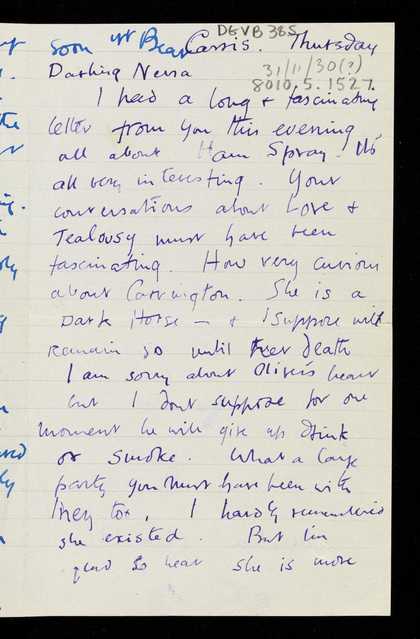 soon yr Bear
DGVB 385
Cassis. Thursday
31/11/30(?)
8010.5.1527.
Darling Nessa
I had a long & fascinating
letter from you this evening
all about Ham Spray. It's
all very interesting. Your
conversations about Love &
Jealousy must have been
fascinating. How very curious
about Carrington. She is a
Dark Horse — & I suppose will
remain so until her death
I am sorry about Olive's heart
but I dont suppose for one
moment he will give up drink
or smoke. What a large
party you must have been with
too, I hardly remembered
she existed. But I'm
glad to hear she is more